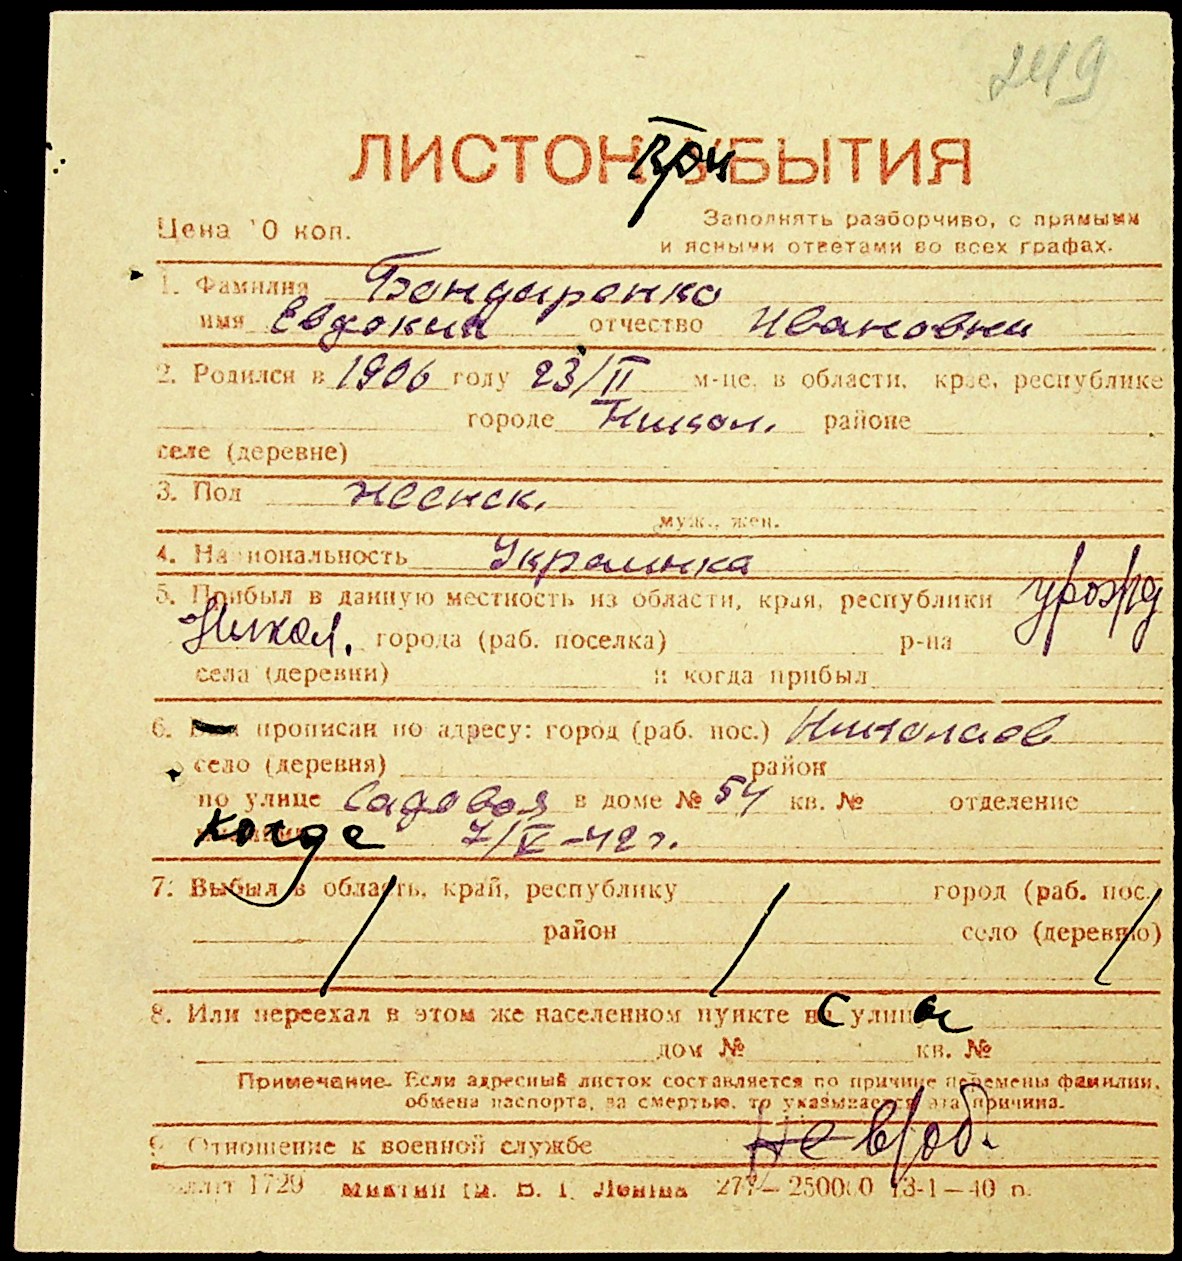 249
ЛИСТОК ПРИБЫТИЯ
Цена 10 коп.
Заполнять разборчиво, с прямыми
и ясными ответами во всех графах.
1. Фамилия Бондаренко
имя Евдокия отчество Ивановна
2. Родился в 1906 году 23/II м-це, в области, крае, республике
городе Никол. районе
селе (деревне)
3. Пол женск.
муж., жен.
4. Национальность Украинка
5. Прибыл в данную местность из области, края, республики урожд
Никол. города (раб. поселка) р-на
села (деревни) и когда прибыл
6. прописан по адресу: город (раб. пос.) Николаев
село (деревня) район
по улице Садовая в доме № 54 кв. № отделение
когда 7/V-42 г.
7. Выбыл в область, край, республику город (раб. пос.)
район село (деревню)
8. Или переехал в этом же населенном пункте с улицы
дом № кв. №
Примечание. Если адресный листок составляется по причине перемены фамилии,
обмена паспорта, за смертью, то указывается эта причина.
9. Отношение к военной службе не в/об.
1729 277—250000 13-1—40 р.